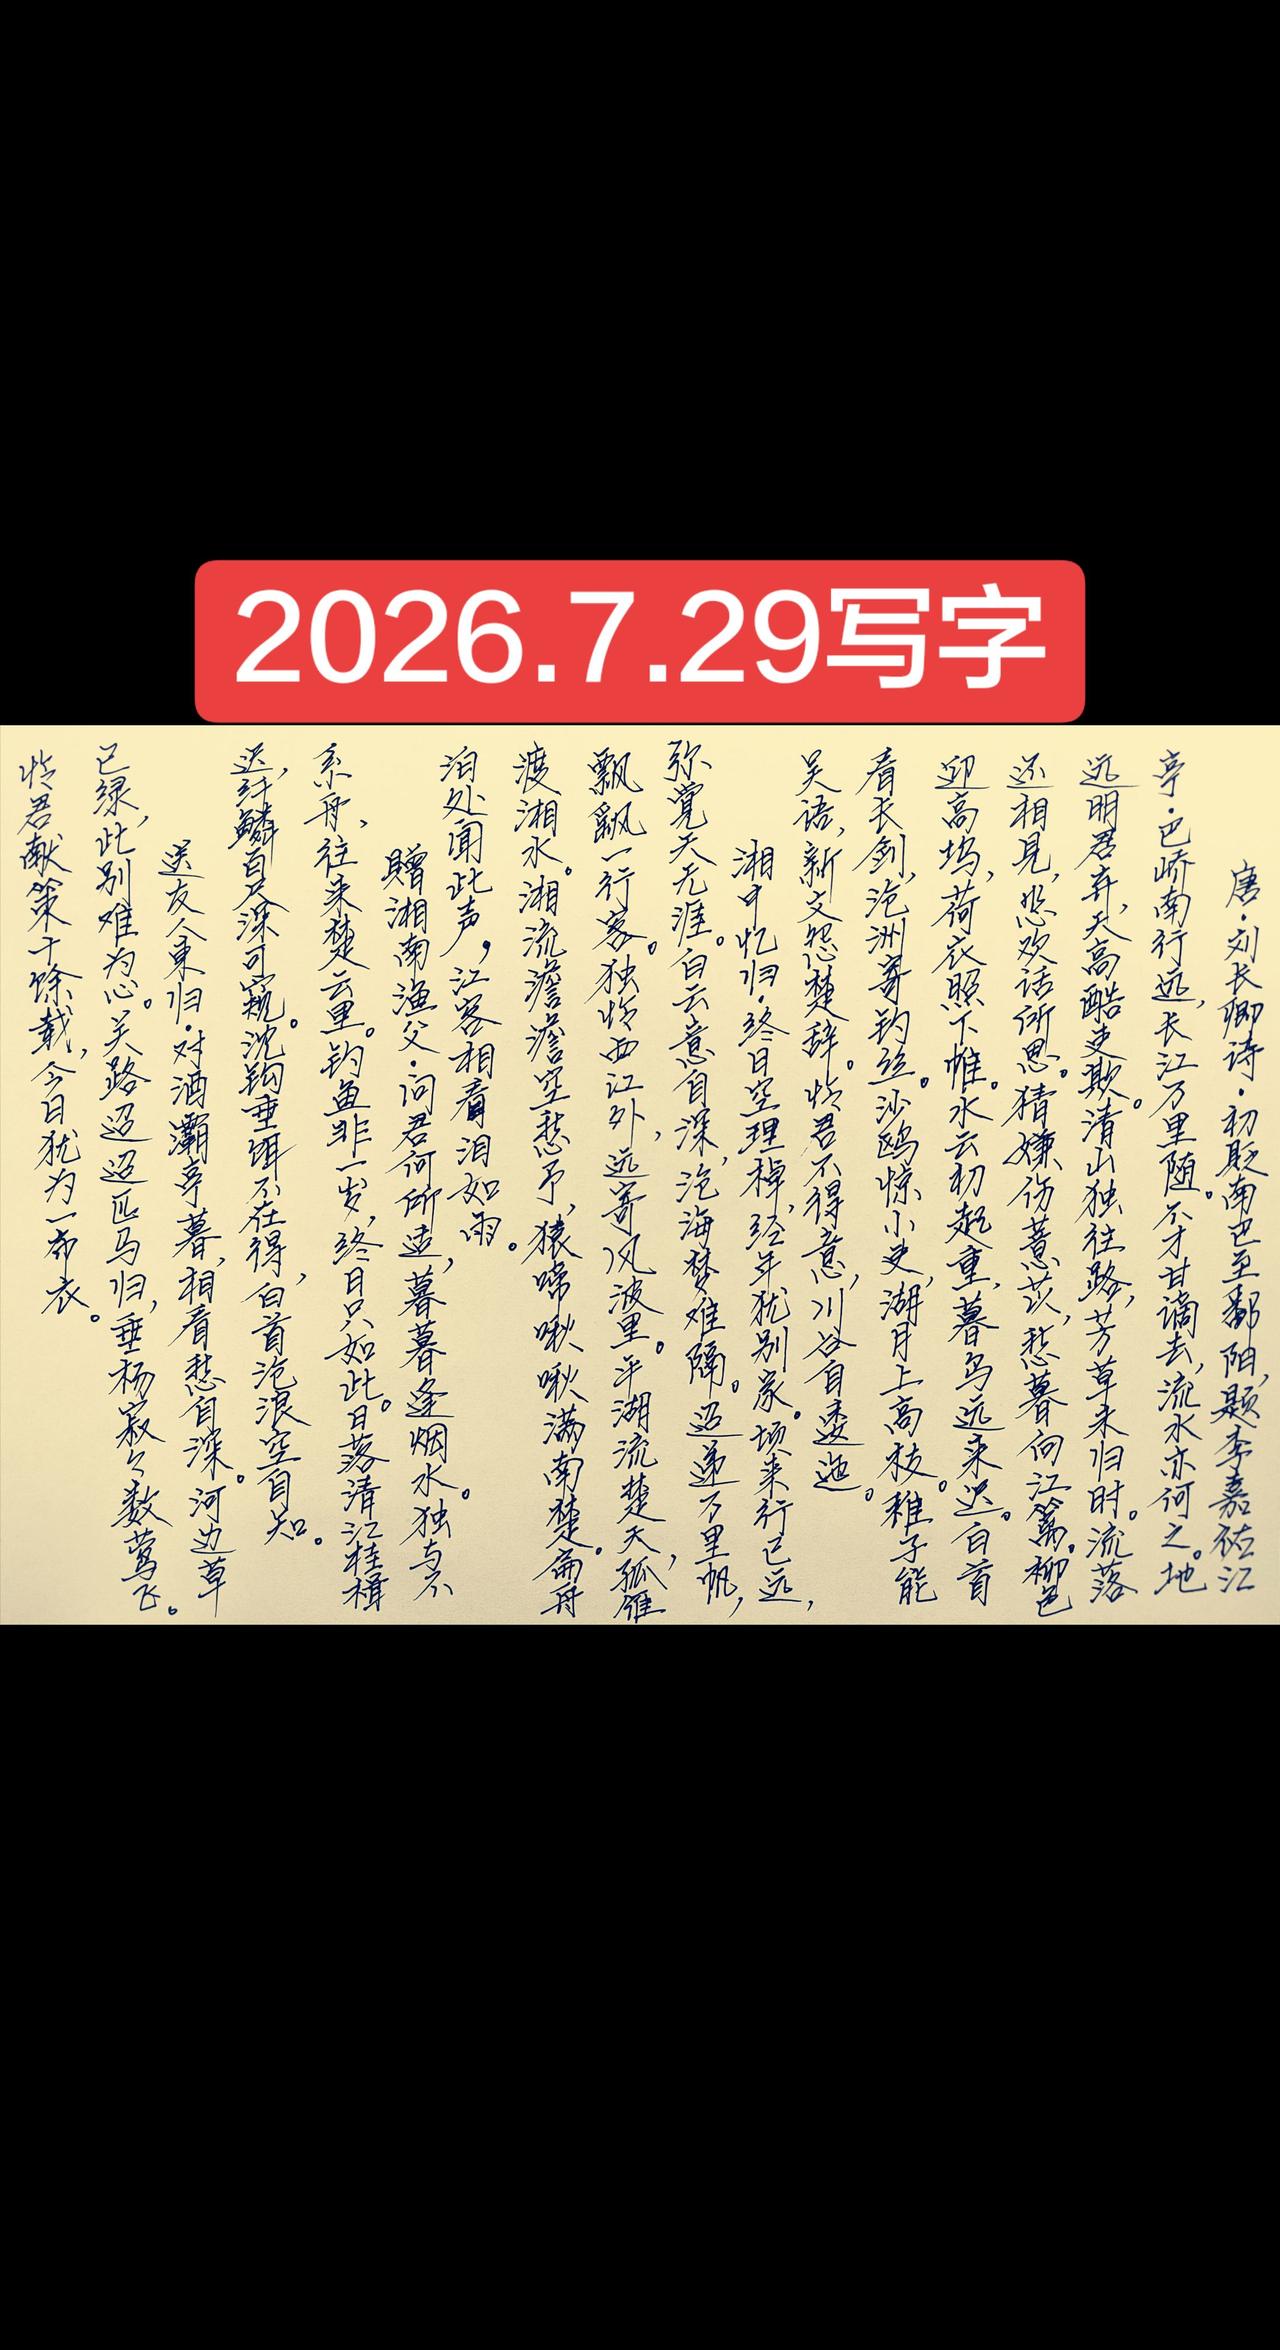 2026.7.29写字
唐·刘长卿诗·初贬南巴至鄱阳,题李嘉祐江
亭·巴峤南行远,长江万里随。不才甘谪去,流水亦何之。地
远明君弃,天高酷吏欺。清山独往路,芳草未归时。流落
还相见,悲欢话所思。猜嫌伤薏苡,愁暮向江篱。柳色
迎高坞,荷衣照下帷。水云初起重,暮鸟远来迟。白首
看长剑,沧洲寄钓丝。沙鸥惊小吏,湖月上高枝。稚子能
吴语,新文怨楚辞。怜君不得意,川谷自逶迤。
湘中忆归·终日空理棹,经年犹别家。顷来行已远,
弥觉天无涯。白云意自深,沧海梦难隔。迢递万里帆,
飘飘一行客。独怜西江外,远寄风波里。平湖流楚天,孤雁
渡湘水。湘流澹澹空愁予,猿啼啾啾满南楚。扁舟
泊处闻此声,江客相看泪如雨。
赠湘南渔父·问君何所适,暮暮逢烟水。独与不
系舟,往来楚云里。钓鱼非一岁,终日只如此。日落清江桂楫
迟,纤鳞百尺深可窥。沈钩垂饵不在得,白首沧浪空自知。
送友人东归·对酒灞亭暮,相看愁自深。河边草
已绿,此别难为心。关路迢迢匹马归,垂杨寂々数莺飞。
怜君献策十馀载,今日犹为一布衣。